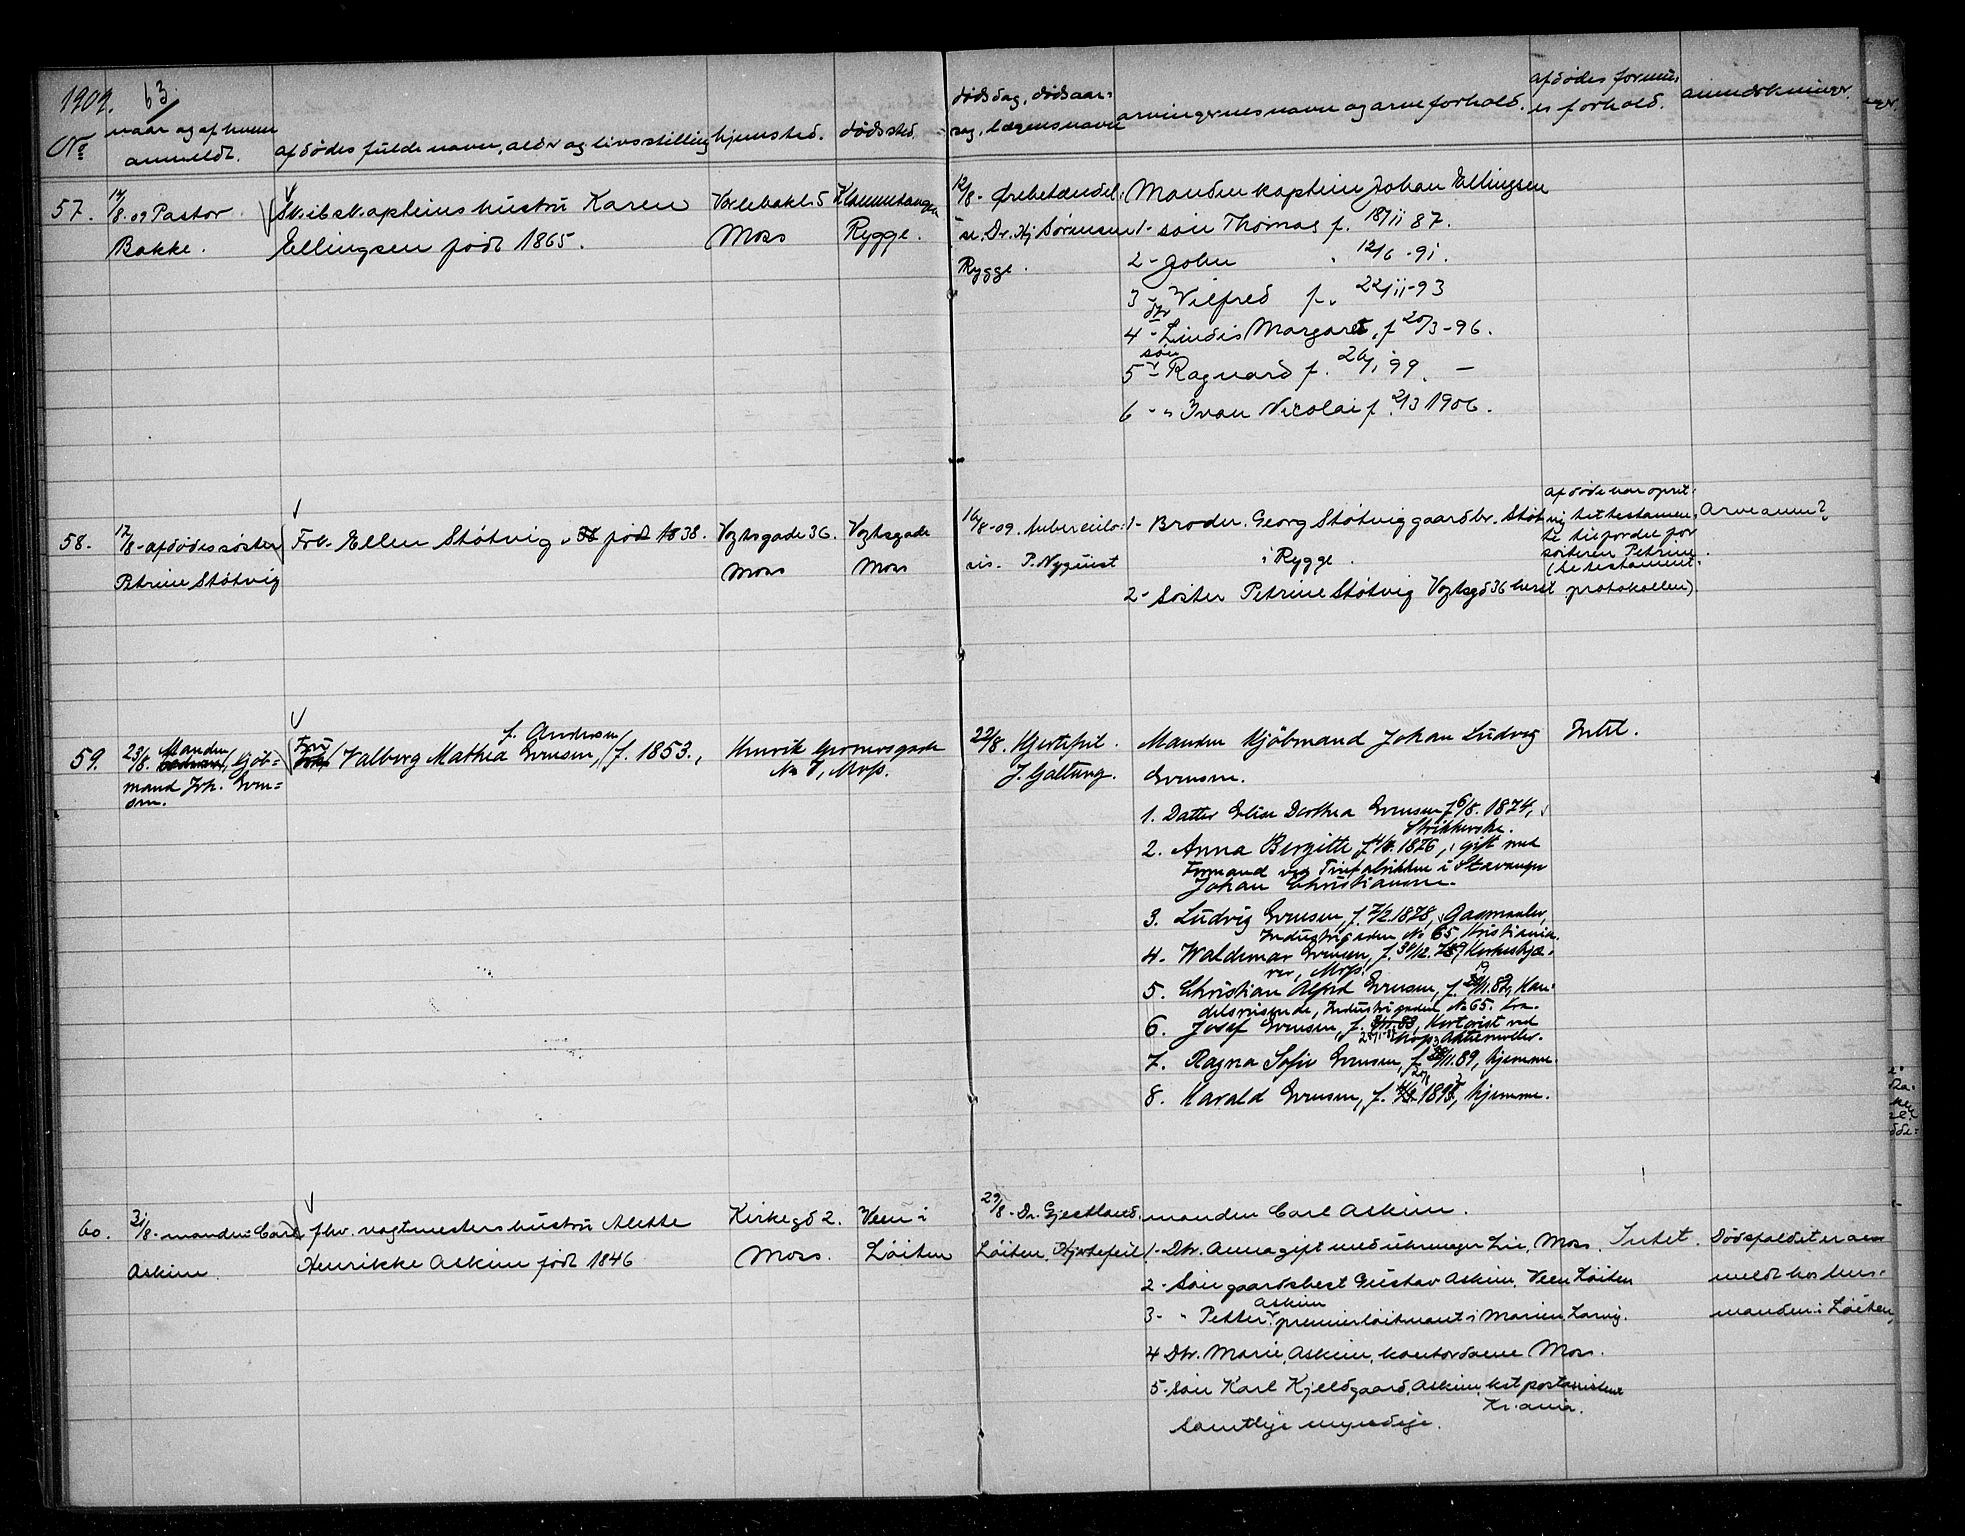 1909. 63.
No
naar og af hvem
anmeldt.
afdödes fulde navn, alder og livsstilling
hjemsted.
dödssted.
dødsdag, dødsaar-
sag, lægens navn
arvingernes navn og arveforhold.
afdødes formu-
es forhold.
anmerkninger.
57.
17/8.09 Pastor
Bakke.
Skibskapteins hustru Karen
Ellingsen født 1865.
Varlebakk. 5
Moss
Rygge.
12/8 - Ørebetændel-
se. Dr. Hj Sørensen
Rygge.
Manden kaptein Johan Ellingsen
1- søn Thomas f. 18/11 87.
2- John " 12/6 - 91.
3 - Wilfred f. 22/11-93
dtr
4 - Lindis Margaret, f 20/3 - 96.
søn
5 - Ragnard f. 26/1 99. -
6 - " Ivan Nicolai f. 2/3 1906.
58.
17/8 - afdødes søster
Petrine Støtvig
Frk. Ellen Støtvig, født 1838.
Vogtsgade 36.
Moss
Vogtsgade
Moss
16/8-09. tuberculo-
sis. P. Nyquist
1- Broder. Georg Støtvig gaardbr. Støtvig
i Rygge.
2- Søster Petrine Støtvig Vogtsgd 36 herst
afdøde har opret-
tet testamen-
te til fordel for
søsteren Petrine
(se testament-
protokollen).
Arveanm?
59.
23/8. Manden, Kjöb-
mand Joh. Even-
sen.
f. Andersen
Fru Valborg Mathea Evensen, f. 1853.,
Henrik Gerners gade
No 7, Moss.
22/8. Hjertefeil.
J. Galtung.
Manden Kjöbmand Johan Ludvig
Evensen.
1. Datter Elise Dorthea Evensen, f 6/8. 1874,
Strikkerske.
2. Anna Birgitte f. 1876, gift med
Formand ved Tinfabrikken i Stavanger
Johan Christiansen.
3. Ludvig Evensen, f. 7/2 1878,
Industrigaden No 65 Kristiania.
4. Waldemar Evensen, f. 31/12. 79,
Moss.
5. Christian Alfred Evensen, f. 19/11. 82, Han-
delsreisende, Industrigaden No 65. Kra.
6. Josef Evensen, f. Kontorist ved
Moss Aktiemøller.
7. Ragna Sofie Evensen, f. 89, hjemme.
8. Harald Evensen, f. hjemme.
Intet.
60.
31/8 - manden: Carl
Askim.
fhv. vagtmesters hustru Alette
Henrikke Askim født 1846
Kirkegd 2.
Moss.
Veen i
Løiten
29/8 - Dr. Gjestland.
Løiten. Hjertefeil
manden Carl Askim.
1- Dtr. Anna gift med uhrmager Lie, Moss.
2 - Søn gaardsbest Gustav Askim. Veen Løiten
3 - " Petter Askim premierløitnant i Marinen Larvig.
4 Dtr. Marie Askim, kontordame Moss.
5 - Søn Karl Kjeldgaard Askim, kst postassistent
Kr.ania.
Samtlige myndige.
Intet.
Dødsfaldet er an-
meldt hos lens-
manden i Løiten,